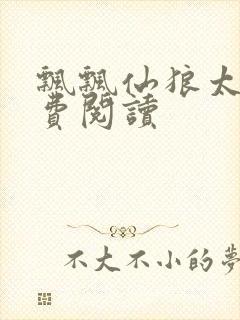 飄飄仙狼太
費閱讀
不大不小的夢